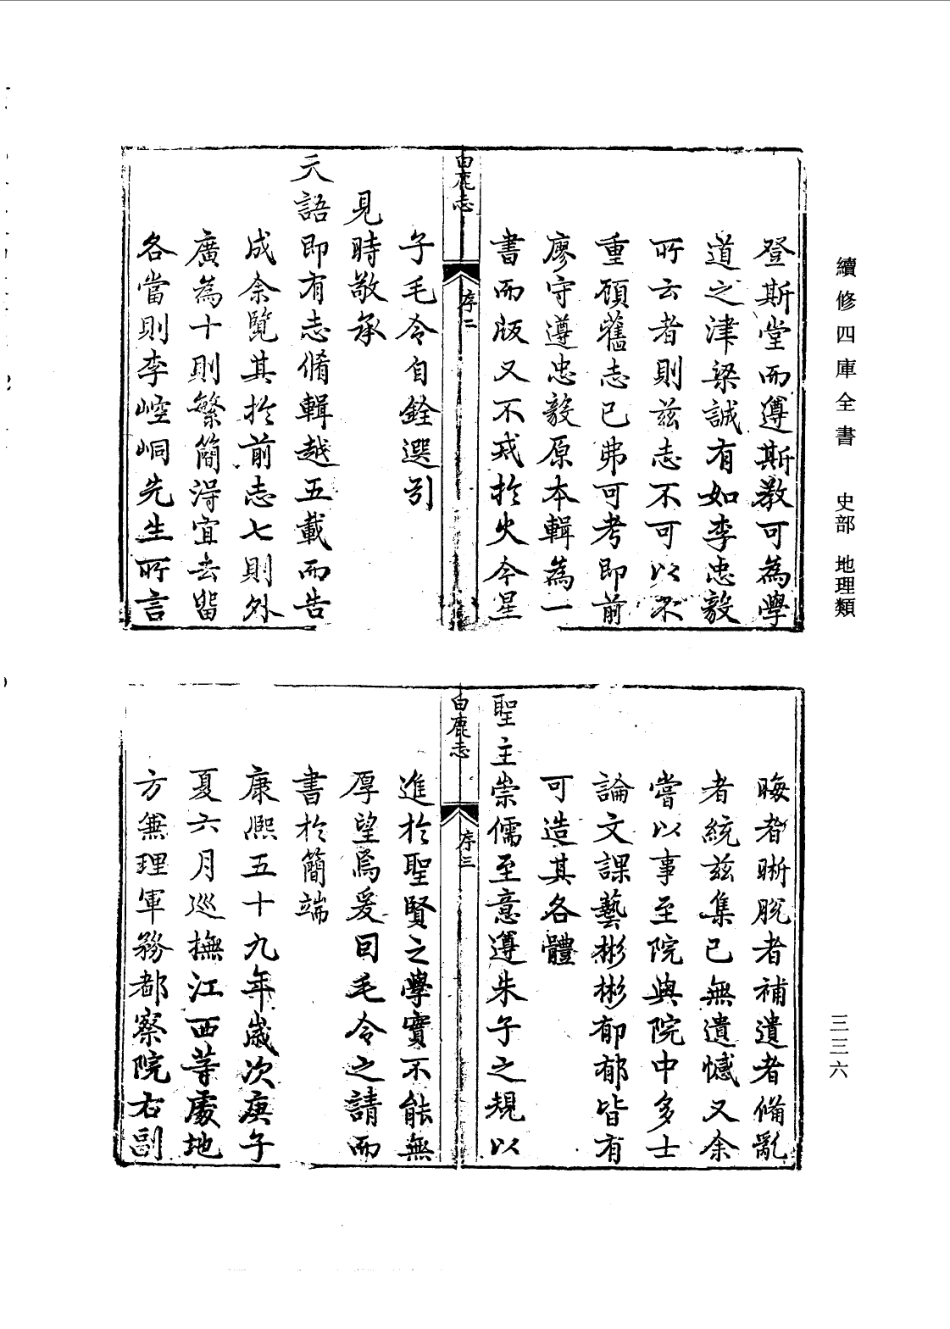 續修四庫全書 史部 地理類
登斯堂而遵斯教可為學
道之津梁誠有如李忠毅
所云者則茲志不可以不
重顧舊志已弗可考即前
廖守遵忠毅原本輯為一
書而版又不戒於火今星
白鹿志 序二
子毛令自銓選引
見時敬承
天語即有志脩輯越五載而告
成余覽其於前志七則外
廣為十則繁簡淂宜去留
各當則李崆峒先生所言
晦者晰脫者補遺者備亂
者統茲集已無遺憾又余
嘗以事至院與院中多士
論文課藝彬彬郁郁皆有
可造其各體
聖主崇儒至意遵朱子之規以
白鹿志 序三
進於聖賢之學實不能無
厚望焉爰因毛令之請而
書於簡端
康熙五十九年歲次庚午
夏六月巡撫江西等處地
方兼理軍務都察院右副
三三六